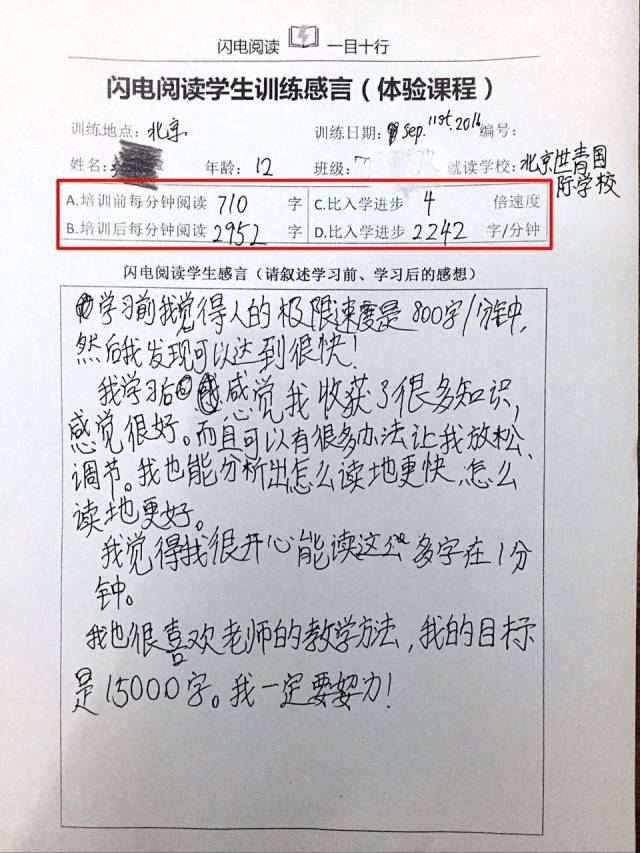 闪电阅读 一目十行
闪电阅读学生训练感言（体验课程）
训练地点：北京 训练日期：Sep. 11st. 2016 编号：
姓名： 年龄：12 班级：7 就读学校：北京世青国
际学校
A.培训前每分钟阅读 710 字 C.比入学进步 4 倍速度
B.培训后每分钟阅读 2952 字 D.比入学进步 2242 字/分钟
闪电阅读学生感言（请叙述学习前、学习后的感想）
学习前我觉得人的极限速度是800字/1分钟,
然后我发现可以达到很快!
我学习后感觉我收获了很多知识,
感觉很好。而且可以有很多办法让我放松、
调节。我也能分析出怎么读地更快,怎么
读地更好。
我觉得我很开心能读这么多字在1分
钟。
我也很喜欢老师的教学方法,我的目标
是15000字。我一定要努力!